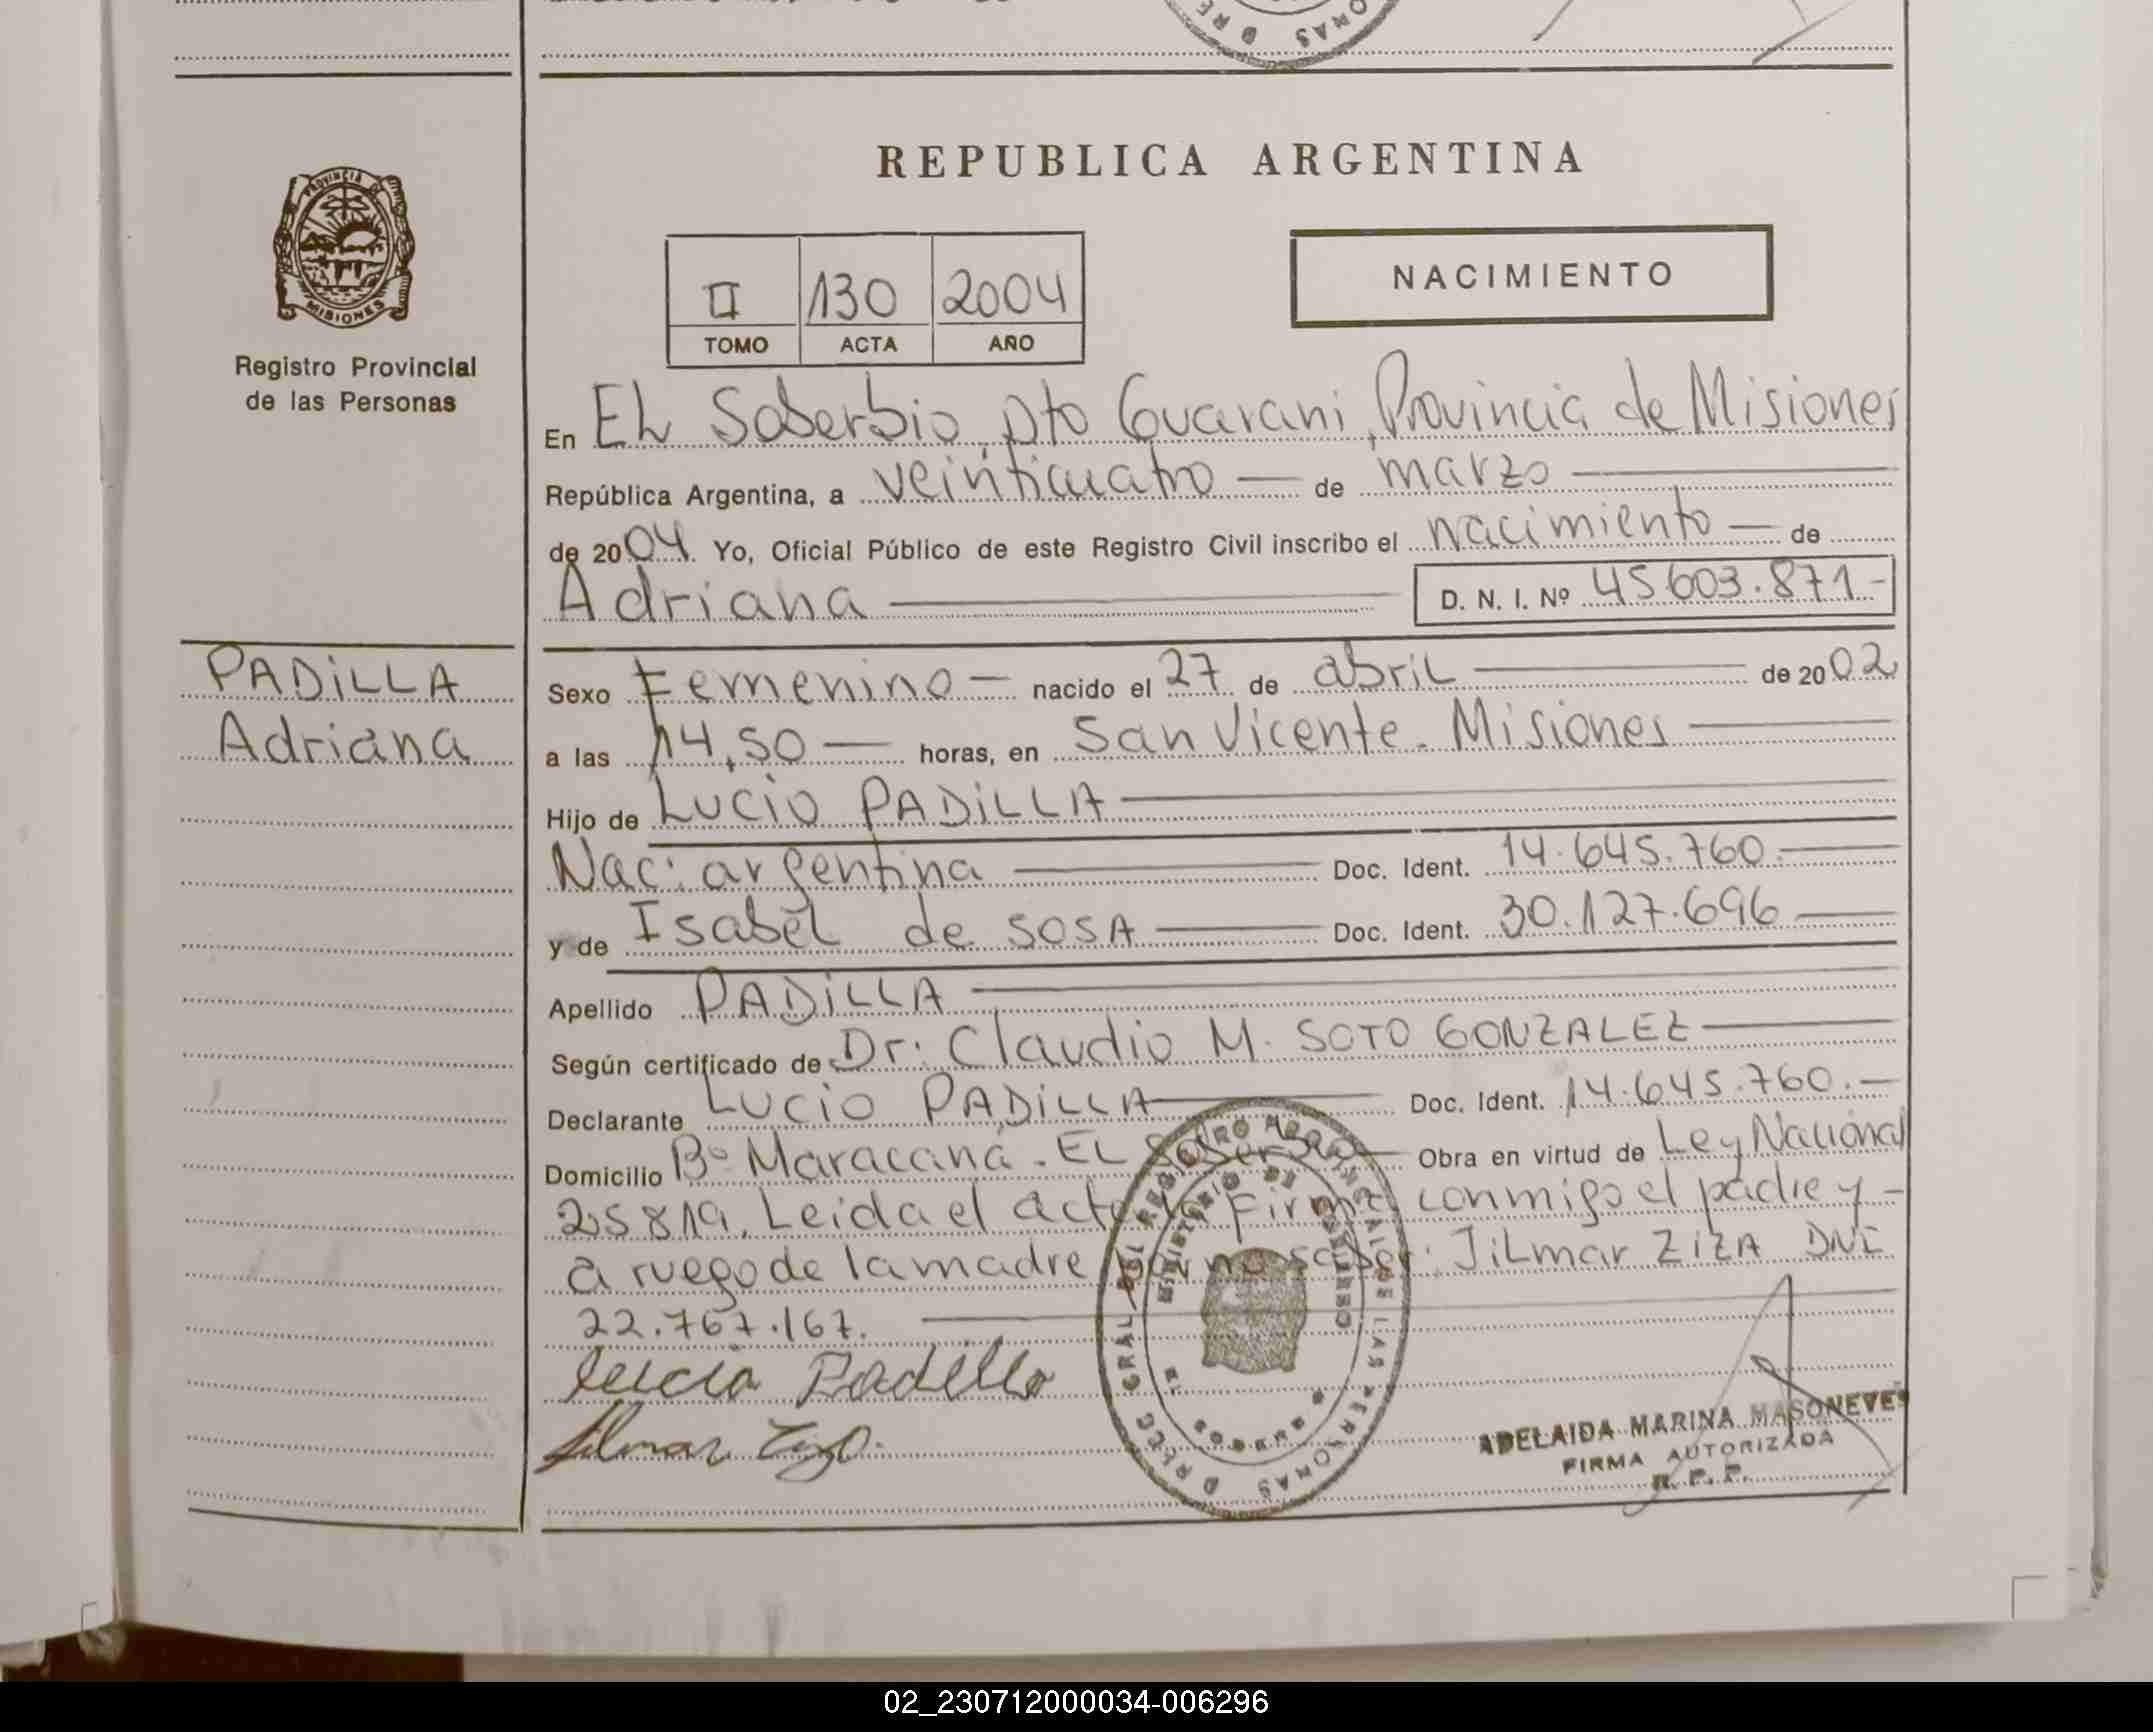 REPUBLICA ARGENTINA
PROVINCIA DE
MISIONES
Registro Provincial
de las Personas
II 130 2004
TOMO ACTA AÑO
NACIMIENTO
En EL Soberbio, Dto Guarani, Provincia de Misiones
República Argentina, a veinticuatro — de marzo
de 2004. Yo, Oficial Público de este Registro Civil inscribo el nacimiento — de
Adriana D. N. I. Nº 45.603.871.-
PADiLLA
Adriana
Sexo Femenino — nacido el 27 de abril de 2002
a las 14,50 — horas, en San Vicente. Misiones
Hijo de LUCiO PADiLLA
Nac: argentina Doc. Ident. 14.645.760.
y de Isabel de SOSA Doc. Ident. 30.127.696
Apellido PADiLLA
Según certificado de Dr: Claudio M. SOTO GONZALEZ
Declarante LUCiO PADiLLA Doc. Ident. 14.645.760.—
Domicilio Bº Maracaná. EL Soberbio Obra en virtud de Ley Nacional
25819. Leida el acta la Firma conmigo el padre y -
a ruego de la madre por no saber: JiLmar ZIZA DNI
22.767.167.
Lucio Padilla
DIREC GRAL DEL REGISTRO PROVINCIAL DE LAS PERSONAS
MINISTERIO DE GOBIERNO
ADELAIDA MARINA MASONEVES
FIRMA AUTORIZADA
R. P. P.
02_230712000034-006296